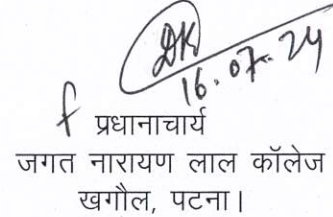 DK
16.07.24
f प्रधानाचार्य
जगत नारायण लाल कॉलेज
खगौल, पटना।